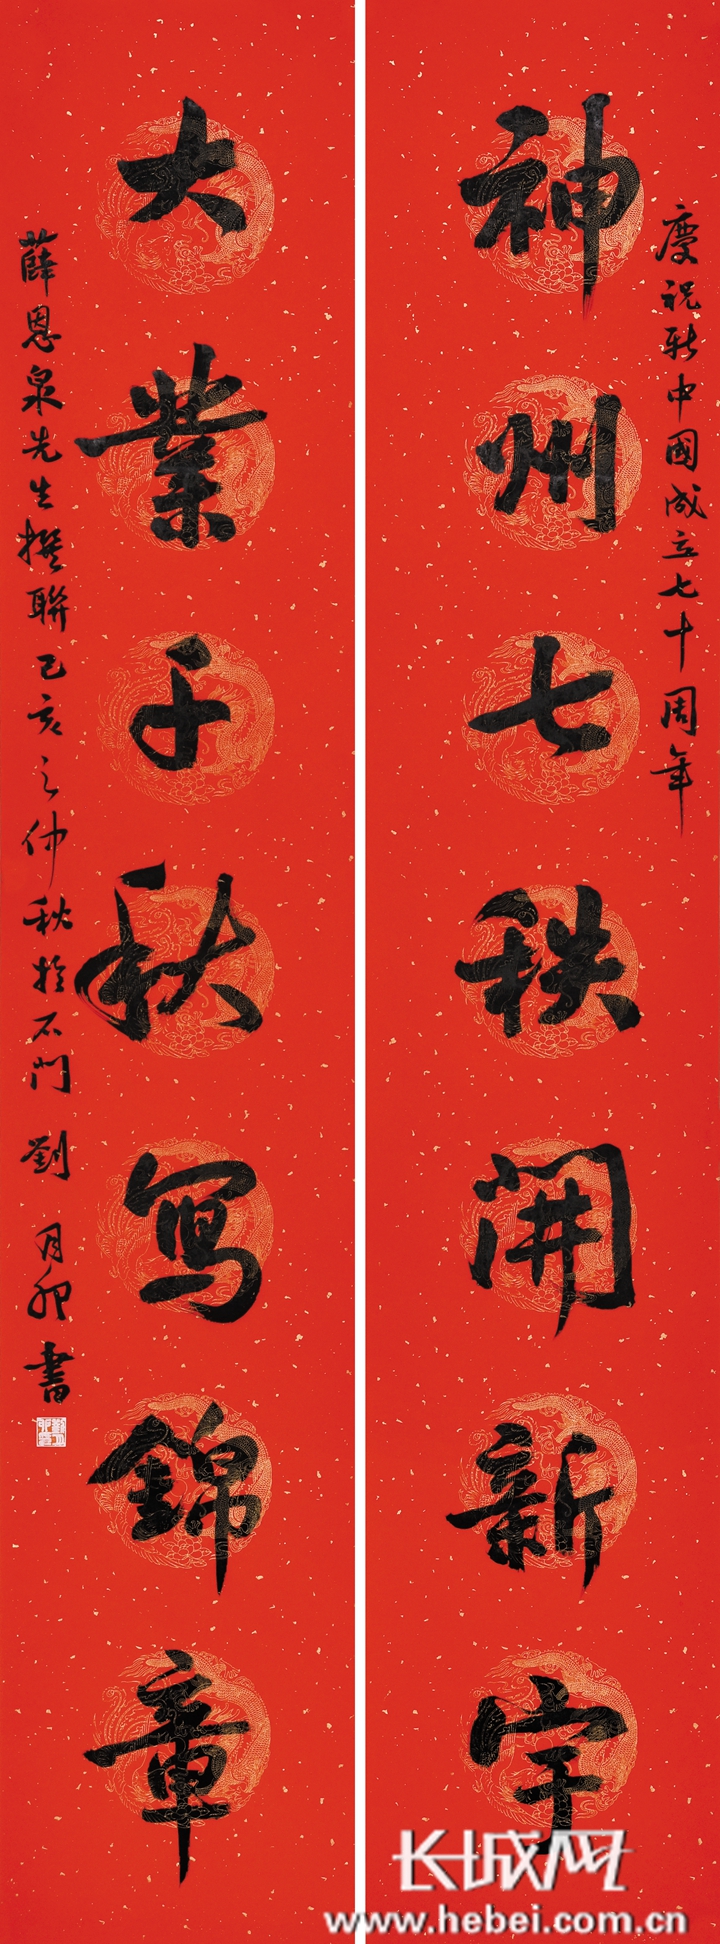 慶祝新中國成立七十周年
神州七秩開新宇
大業千秋寫錦章
薛恩泉先生撰聯己亥之仲秋於石門劉月卯書
长城网
www.hebei.com.cn